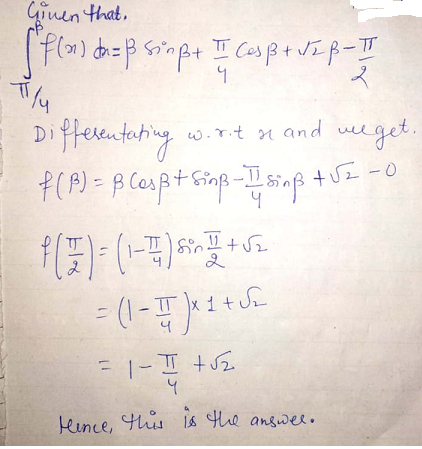 Given that.
∫_{π/4}^{β} f(x) dx = β sinβ + π/4 Cosβ + √2 β - π/2
Differentating w.r.t x and we get.
f(β) = β Cosβ + Sinβ - π/4 sinβ + √2 - 0
f(π/2) = (1 - π/4) sin π/2 + √2
= (1 - π/4) x 1 + √2
= 1 - π/4 + √2
Hence, this is the answer.